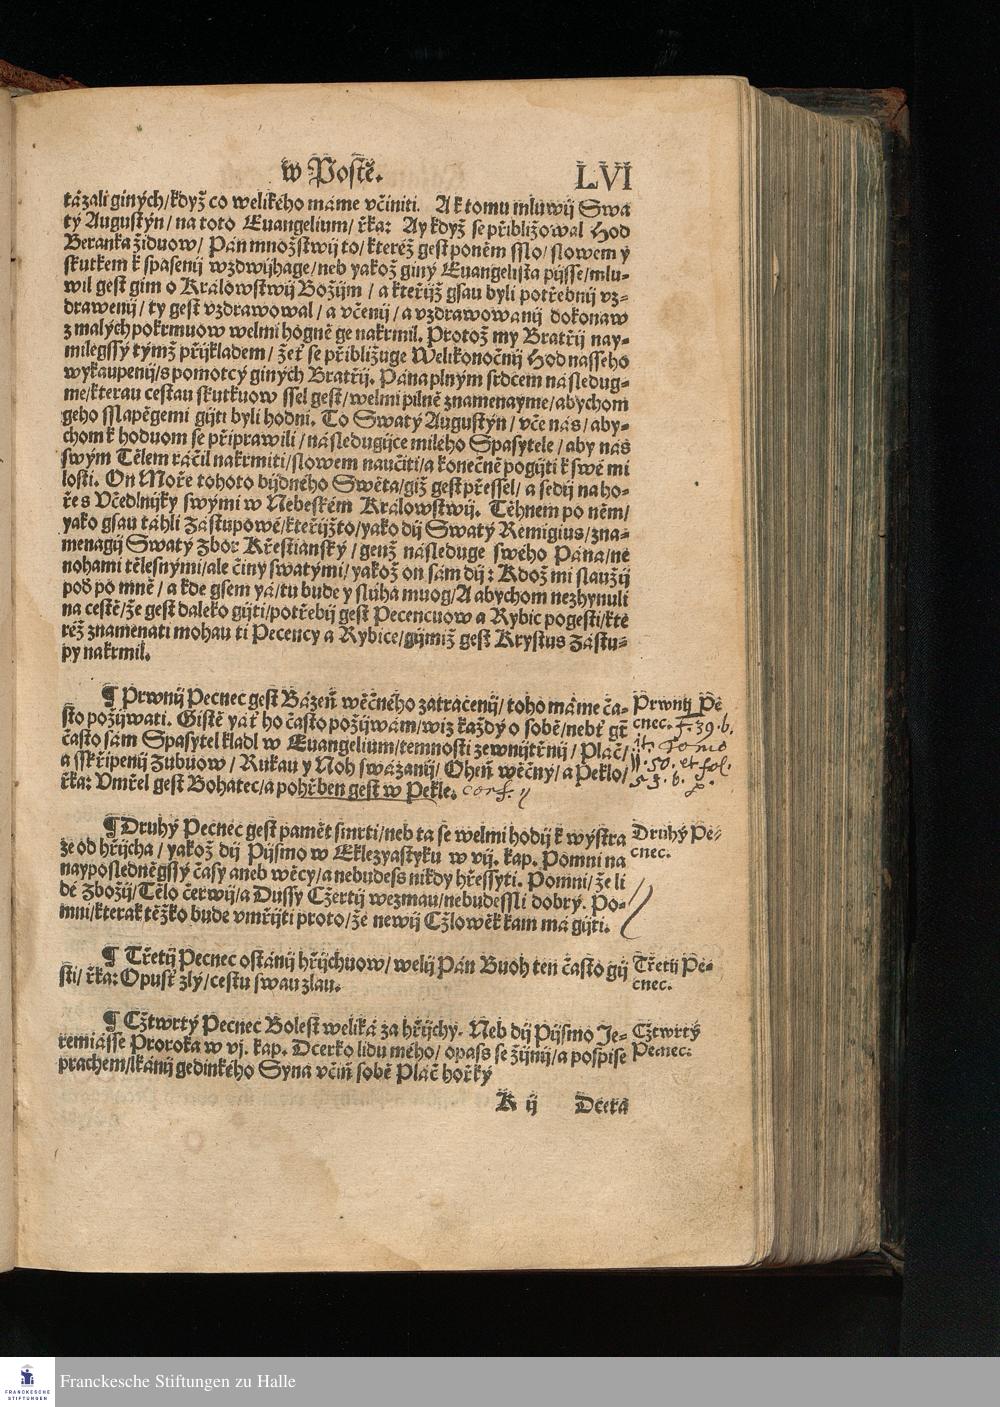 w Postě.
LVI
tázali giných/když co welikého máme včiniti. A k tomu mluwij Swa
tý Augustýn/na toto Euangelium/řka: Ay když se přibližowal Hod
Beránka židuow/ Pán množstwij to/kteréž gest poněm sslo/slowem y
skutkem k spasenij wzdwihage/neb yakož giný Euangelista pijsse/mlu-
wil gest gim o Králowstwij Božijm/a kteřijž gsau byli potřebnij vz-
drawenij/ty gest vzdrawowal/a včenij/a vzdrawowanij dokonaw
z malých pokrmuow welmi hogně ge nakrmil. Protož my Bratřij nay-
milegssý týmž přijkladem/žeť se přibližuge Welikonočnij Hod nasseho
wykaupenij/s pomotcý giných Bratřij. Pána plným srdcem následug-
me/kterau cestau skutkuow ssel gest/welmi pilně znamenayme/abychom
geho sslapěgemi gijti byli hodni. To Swatý Augustýn/vče nás/aby-
chom k hoduom se připrawili/následugijce milého Spasytele/aby nás
swým Tělem ráčil nakrmiti/slowem naučiti/a konečně pogijti k swé mi
losti. On Moře tohoto bijdného Swěta/giž gest přessel/a sedij na ho-
ře s Včedlnijky swými w Nebeském Králowstwij. Těhnem po něm/
yako gsau táhli Zástupowé/kteřijžto/yako dij Swatý Remigius/zna-
menagij Swatý Zbor Křestianský/genž následuge swého Pána/ne
nohami tělesnými/ale činy swatými/yakož on sám dij: Kdož mi slaužij
poď po mně/a kde gsem yá/tu bude y sluha muog/A abychom nezhynuli
na cestě/že gest daleko gijti/potřebij gest Pecencuow a Rybic pogesti/kte
réž znamenati mohau ti Pecency a Rybice/gijmiž gest Krystus Zástu-
py nakrmil.
¶ Prwnij Pecnec gest Bázeň wěčného zatracenij/toho máme ča-
sto požijwati. Gistě yáť ho často požijwám/wiz každý o sobě/nebť gt̃
často sám Spasytel kladl w Euangelium/temnosti zewnijtřnij/Pláč/
a sskřipenij Zubuow/Rukau y Noh swázanij/Oheň wěčný/a Peklo/
řka: Vmřel gest Bohatec/a pohřben gest w Pekle.
Prwnij Pe
cnec. f. 39. b.
it. Tomo
II. 50. et fol.
53. b.
¶ Druhý Pecnec gest pamět smrti/neb ta se welmi hodij k wýstra
ze od hřijcha/yakož dij Pijsmo w Eklezyastyku w vij. kap. Pomni na
nayposlednégssý časy aneb wěcy/a nebudess nikdy hřessyti. Pomni/že li
dé Zbožij/Tělo čerwij/a Dussy Cžertij wezmau/nebudessli dobrý. Po-
mni/kterak těžko bude vmřijti proto/že newij Cžlowěk kam má gijti.
Druhý Pe-
cnec.
¶ Třetij Pecnec ostánij hřijchuow/welij Pán Buoh ten často gij
sti/řka: Opusť zlý/cestu swau zlau.
Třetij Pe-
cnec.
¶ Cžtwrtý Pecnec Bolest weliká za hřijchy. Neb dij Pijsmo Je-
remiásse Proroka w vj. kap. Dcerko lidu mého/opass se žijnij/a pospise
prachem/lkánij gedinkého Syna včiň sobě Pláč hořký
Cžtwrtý
Pecnec.
K ij Dcera
FRANCKESCHE
STIFTUNGEN
Franckesche Stiftungen zu Halle